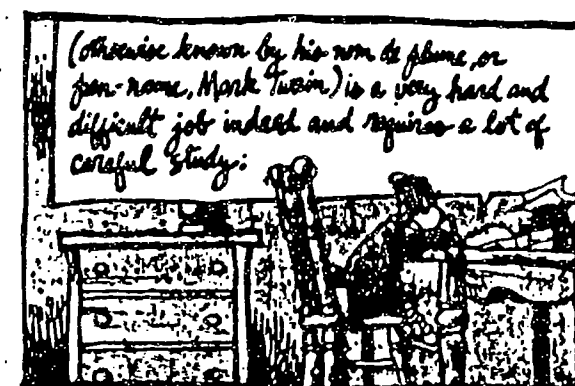 (otherwise known by his nom de plume, or
pen-name, Mark Twain) is a very hard and
difficult job indeed and requires a lot of
careful study: